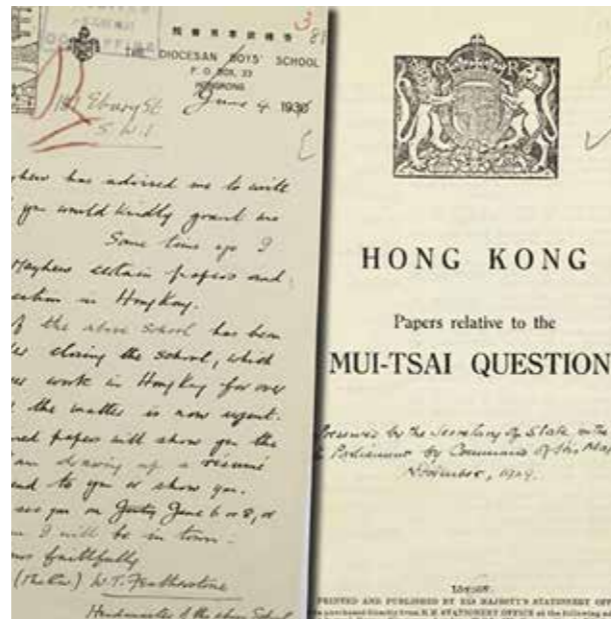 3
81
THE DIOCESAN BOYS' SCHOOL
P. O. BOX, 33
HONGKONG
June 4 1936
Ebury St
S.W.1
has advised me to write
you would kindly grant me
Some time ago I
Mayhew certain papers and
in HongKong.
of the above School has been
closing the school, which
work in HongKong for over
the matter is now urgent.
papers will show you the
am drawing up a résumé
to you or show you.
see you on June 6 or 8, or
I will be in town.
faithfully
W.T. Featherstone
Headmaster of the above School
HONG KONG
Papers relative to the
MUI-TSAI QUESTION
Presented by the Secretary of State
Parliament by Command of His
November, 1929.
LONDON
PRINTED AND PUBLISHED BY HIS MAJESTY'S STATIONERY
purchased directly from H.M. STATIONERY OFFICE at the following